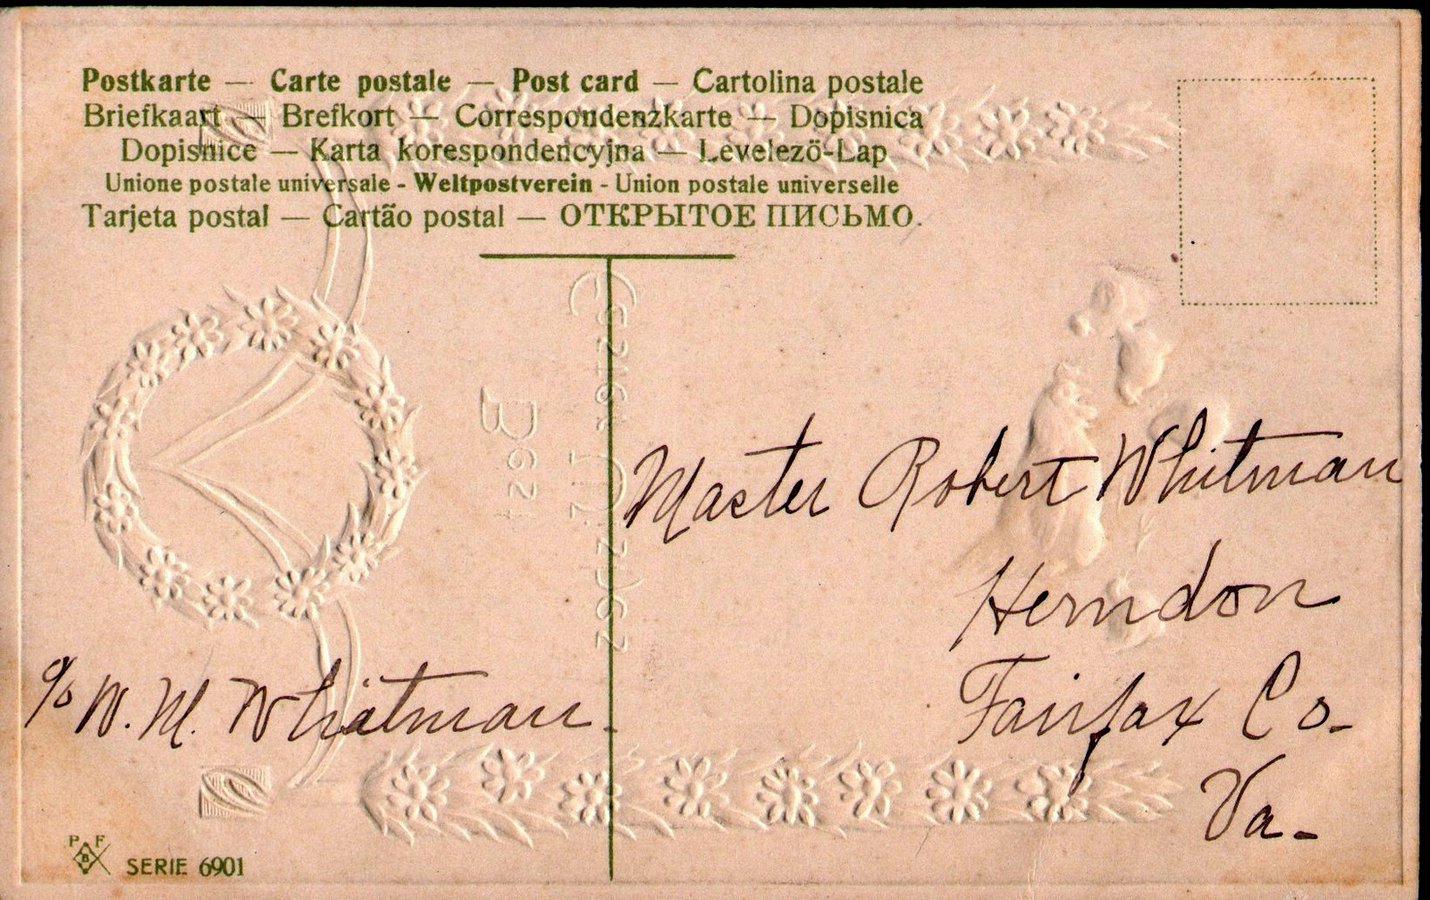 Postkarte — Carte postale — Post card — Cartolina postale
Briefkaart — Brefkort — Correspondenzkarte — Dopisnica
Dopisnice — Karta korespondencyjna — Levelezö-Lap
Unione postale universale - Weltpostverein - Union postale universelle
Tarjeta postal — Cartão postal — ОТКРЫТОЕ ПИСЬМО.
Master Robert Whitman
Herndon
Fairfax Co.
Va.
c/o W. M. Whitman.
P F
B
SERIE 6901